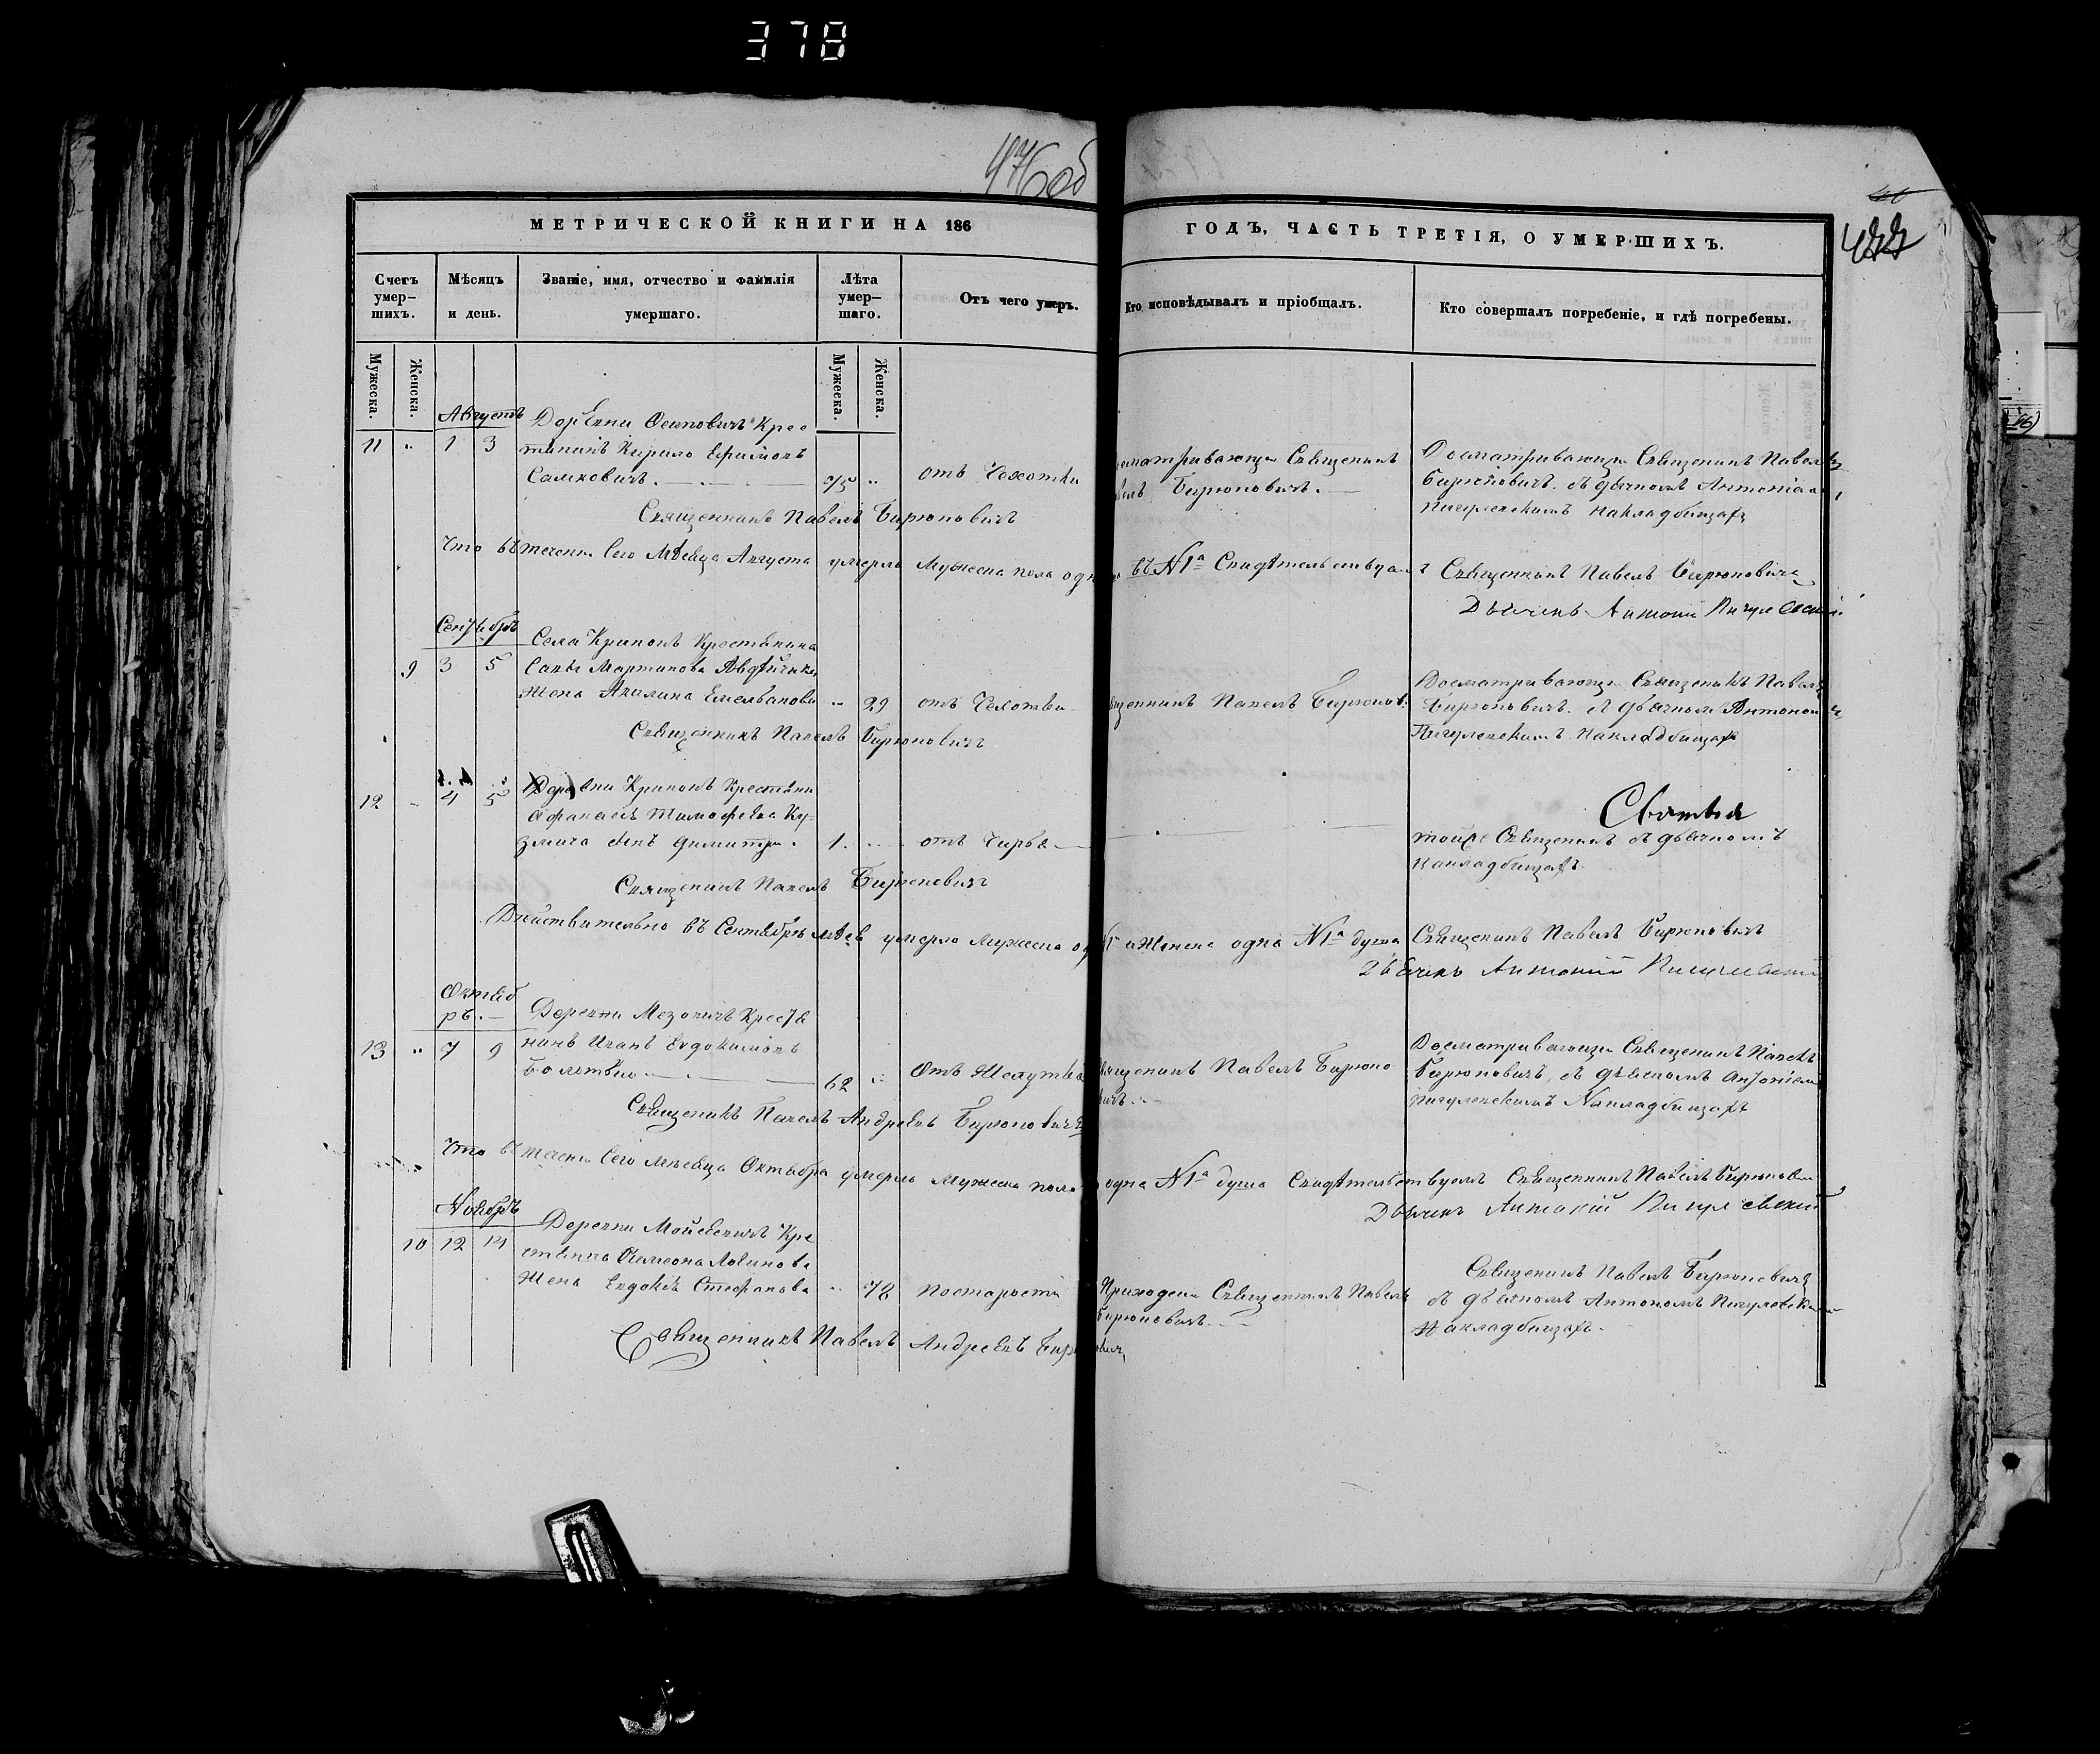 378
476об
МЕТРИЧЕСКОЙ КНИГИ НА 186
ГОДЪ, ЧАСТЬ ТРЕТІЯ, О УМЕРШИХЪ.
477
Счетъ умер-
шихъ.
Мѣсяцъ
и день.
Званіе, имя, отчество и фамилія
умершаго.
Лѣта
умер-
шаго.
Отъ чего умеръ.
Кто исповѣдывалъ и пріобщалъ.
Кто совершалъ погребеніе, и гдѣ погребены.
Мужеска.
Женска.
Мужеска.
Женска.
Августъ
Деревни Осиповичъ Крес
11 " 1 3 тянинъ Кирило Ефимовъ
75 " отъ Чехотки
Священникъ Павелъ Бирюковичъ.
Досматривающи Священникъ Павелъ
Бирюковичъ. съ дьячкомъ Антоніемъ
Пигулевскимъ накладбищахъ
Священникъ Павелъ Бирюковичъ
Что въ течени Сего Мѣсяца Августа умерло Мужеска пола одна въ №1а Свидѣтельствуемъ Священникъ Павелъ Бирюковичъ
Дьячекъ Антоній Пигулевскій
Сентябръ
Села Крюковъ Крестянина
9 3 5 Савы Мартинова
жена Акилина Емельянова " 29 отъ Чехотки
Священникъ Павелъ Бирюков:
Досматривающи Священикъ Павелъ
Бирюковичъ. съ дьячкомъ Антоніемъ
Пигулевскимъ накладбищахъ
Священникъ Павелъ Бирюковичъ
12 " 4 5 Деревни Крюковъ Крестянин
Тимофеева Ку-
змича сынъ Димитри. 1. отъ
тойже Священикъ съ дьячкомъ
накладбищахъ.
Священикъ Павелъ Бирюковичъ
Дѣйствительно въ Сентябрѣ мѣсяцѣ умерло мужеска одна №1а и Женска одна №1а душа Священикъ Павелъ Бирюковичъ
Дьячекъ Антоній Пигулевскій
Октяб
ръ.
Деревни Крестя
13 " 7 9 нинъ Иванъ Евдокимовъ
62 " Отъ Желутка
Священикъ Павелъ Бирюко
вичъ.
Досматривающи Священикъ Павелъ
Бирюковичъ, съ дьячкомъ Антоніемъ
Пигулевскимъ Накладбищахъ
Священикъ Павелъ Андреевъ Бирюковичъ
Что въ течени Сего мѣсяца Октября умерло Мужеска пола одна №1а душа Свидѣтельствуемъ Священникъ Павелъ Бирюкович
Дьячекъ Антоній Пигулевскій
Ноябръ
Деревни Мойсевичъ Кре
10 12 14 стянина Симеона Логинова
Жена Евдокія Стефанова " 72 Постарости
Приходски Священникъ Павелъ
Бирюковичъ.
Священикъ Павелъ Бирюковичъ
съ дьячкомъ Антономъ Пигулевскимъ
Накладбищахъ.
Священникъ Павелъ Андреевъ Бирюковичъ